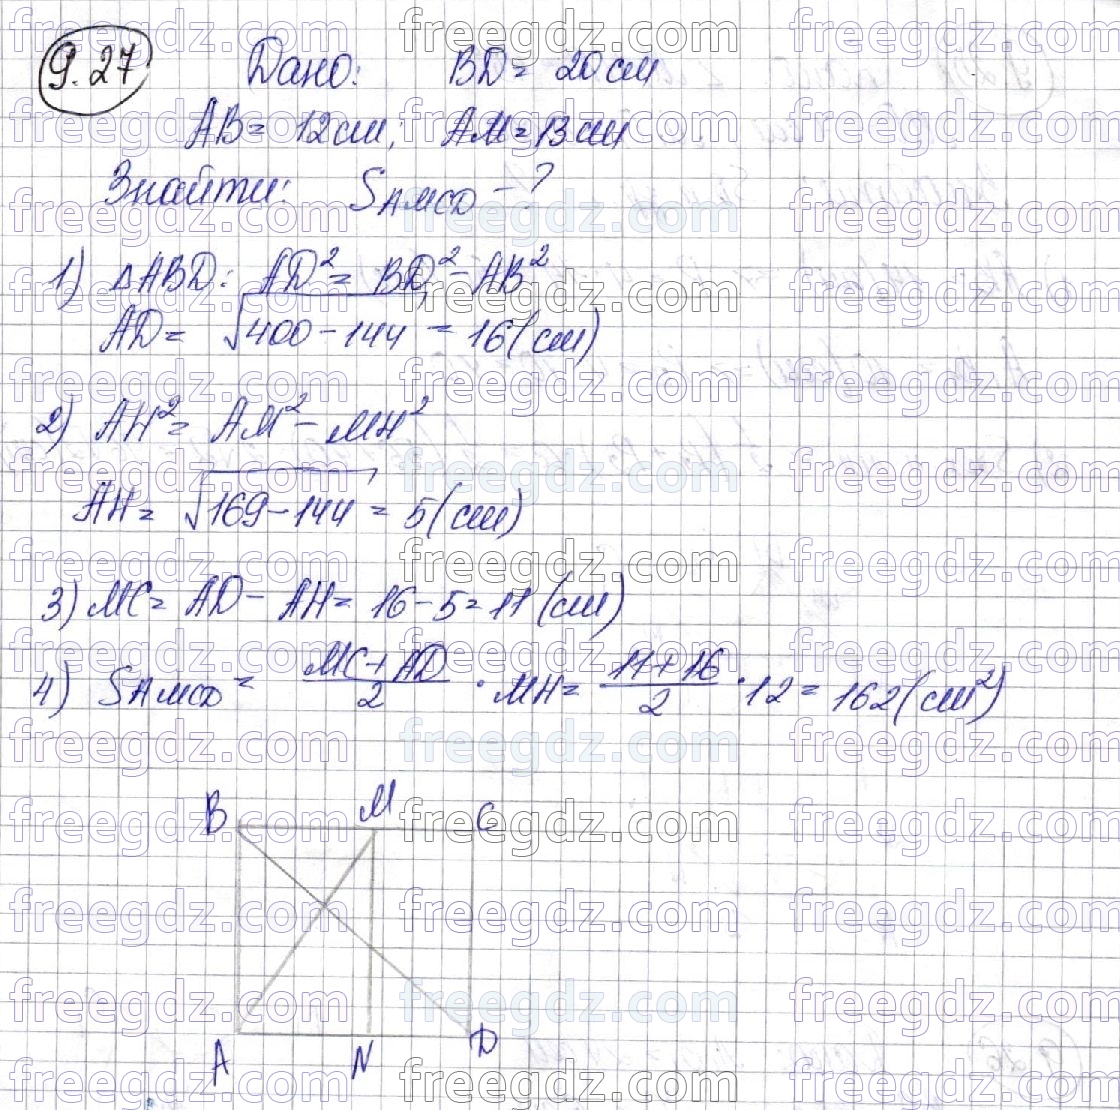 9.27 Дано: BD = 20 см
AB = 12 см; AM = 13 см
Знайти: SAMCD - ?
1) △ABD: AD² = BD² - AB²
AD = √400 - 144 = 16 (см)
2) AH² = AM² - MH²
AH = √169 - 144 = 5 (см)
3) MC = AD - AH = 16 - 5 = 11 (см)
4) SAMCD = MC + AD / 2 · MH = 11 + 16 / 2 · 12 = 162 (см²)
B M C
A N D
freegdz.com